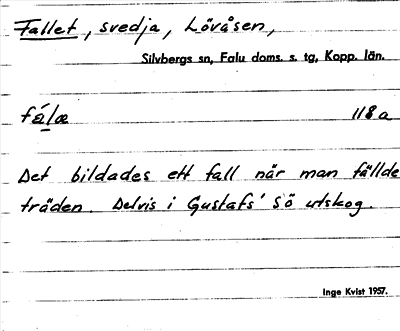 Fallet, svedja, Lövåsen,
Silvbergs sn, Falu doms. s. tg, Kopp. län.
118a
Det bildades ett fall när man fällde
träden. Delvis i Gustafs' sö utskog.
Inge Kvist 1957.